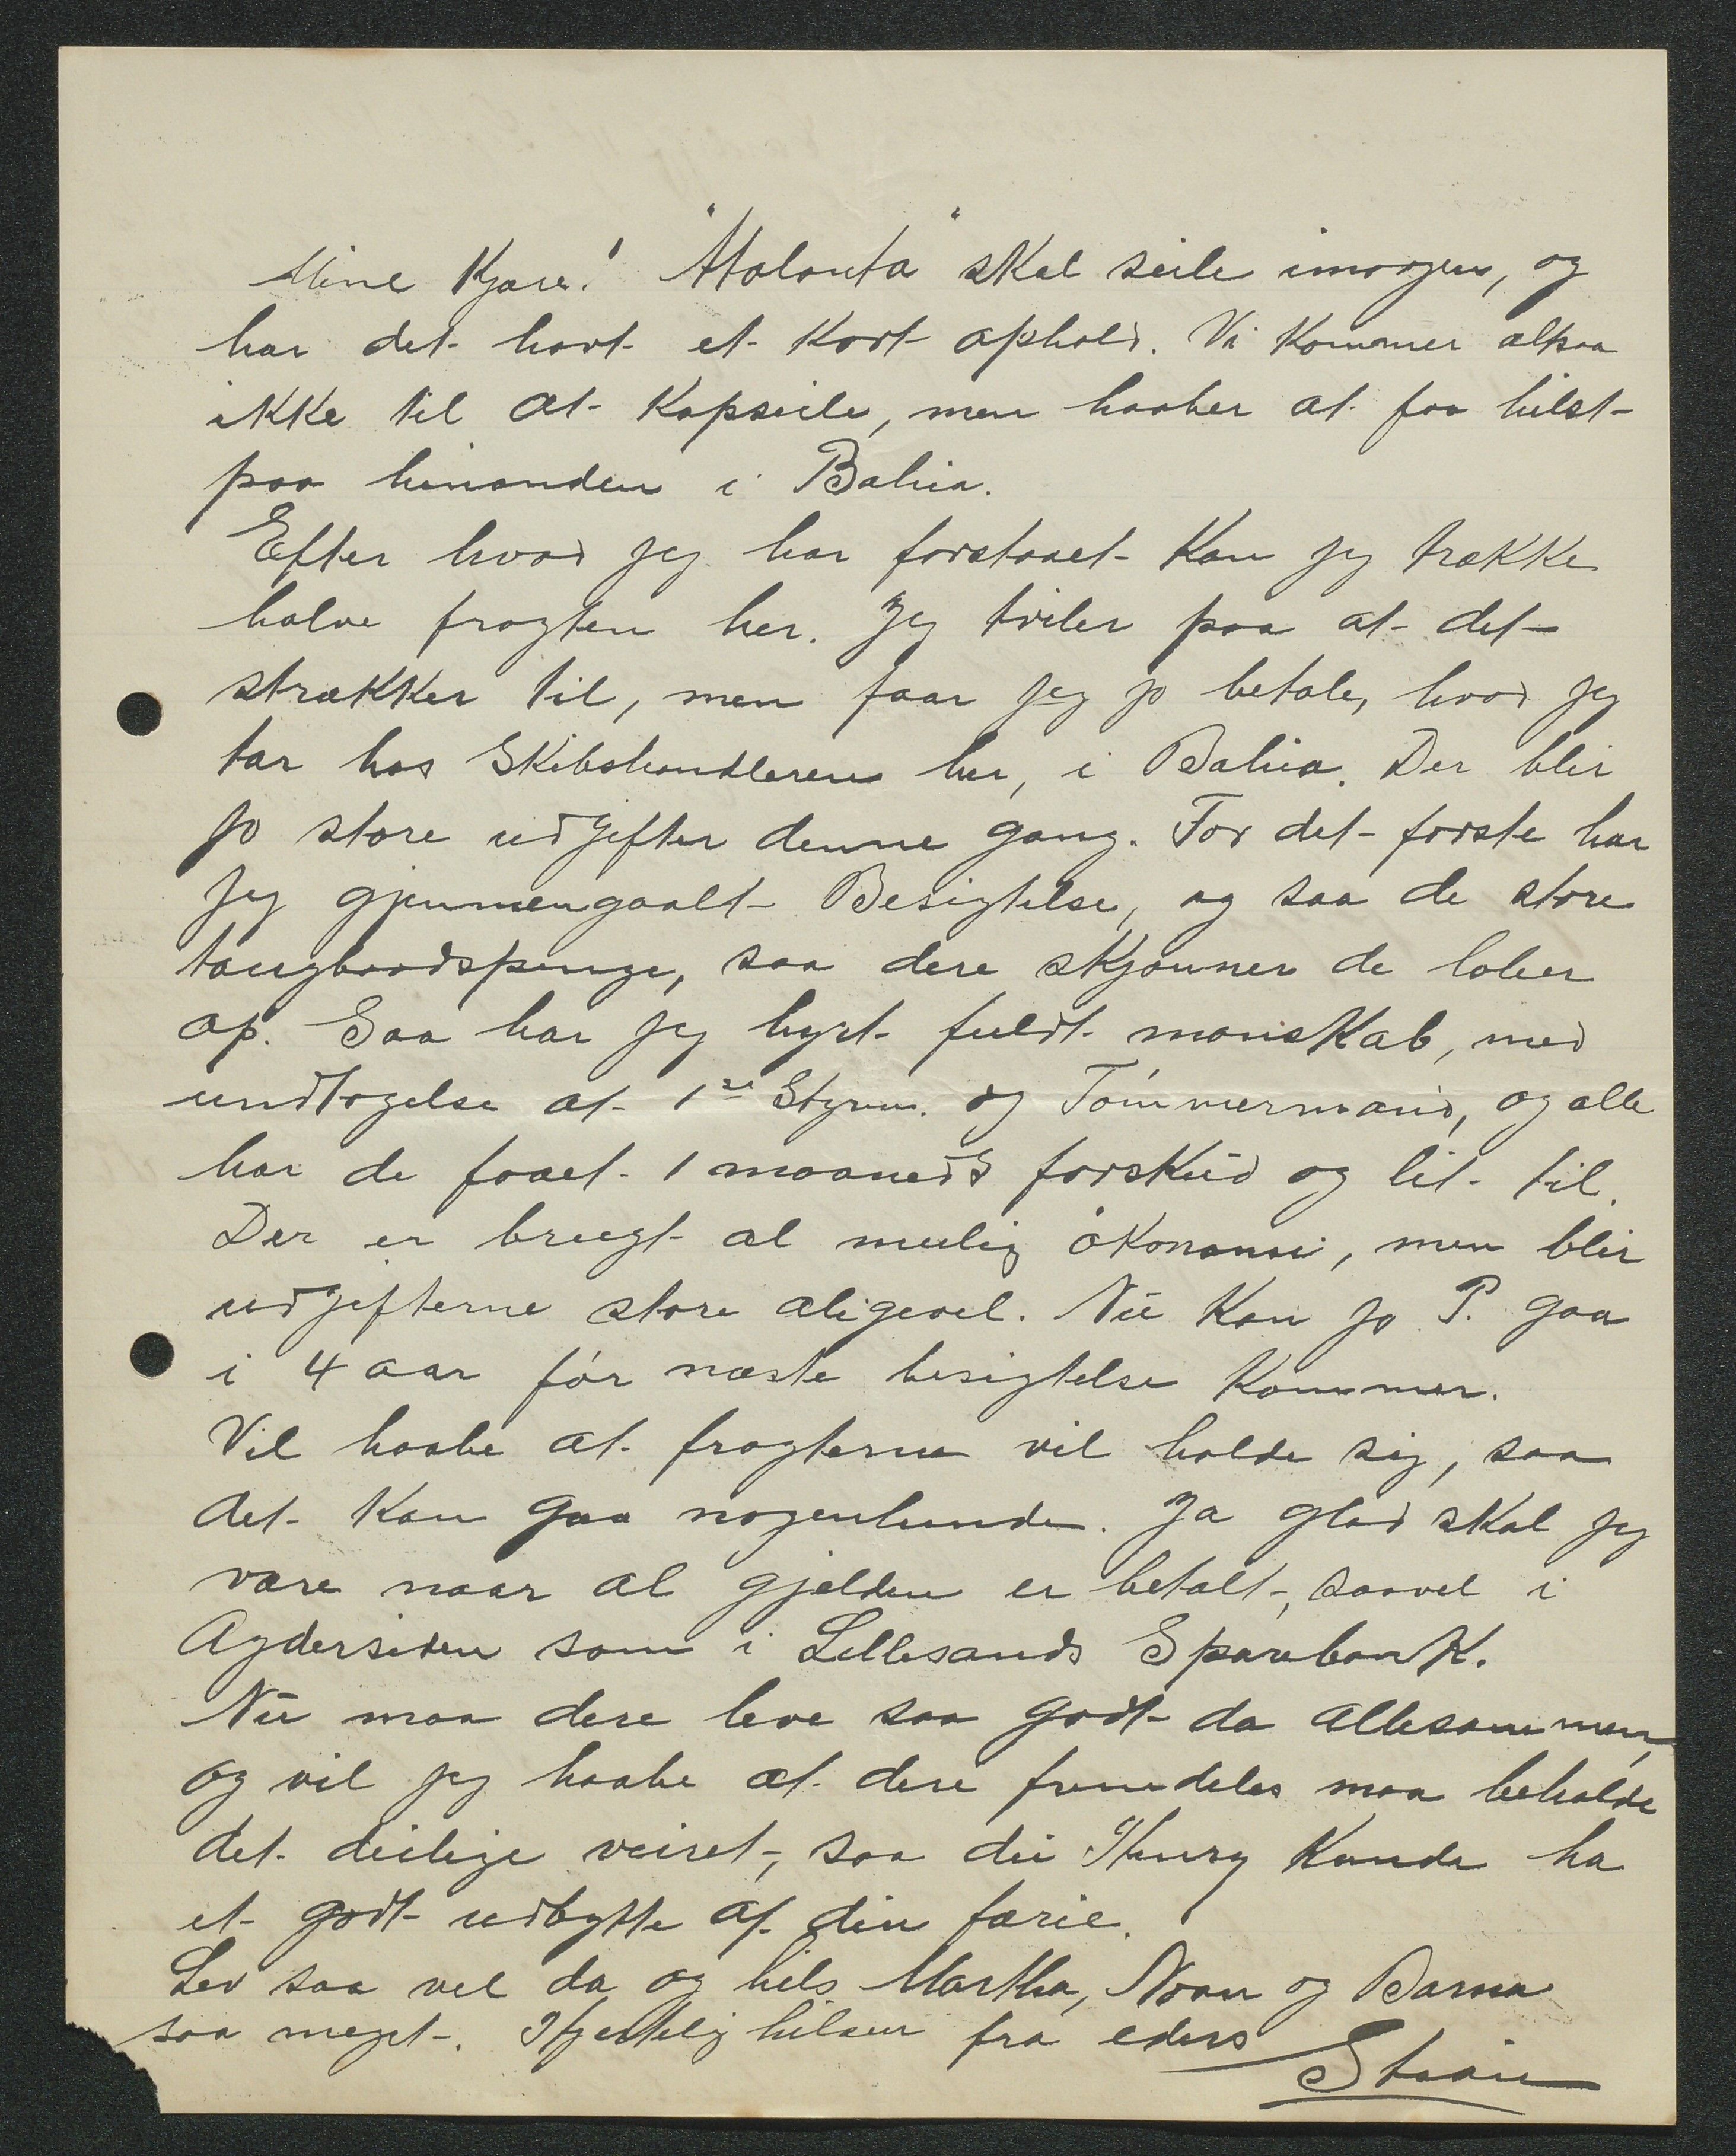 Mine Kjære! "Atalanta" skal seile imorgen, og
har det havt et kort ophold. Vi kommer altsaa
ikke til at kapseile, men haaber at faa hilst
paa hinanden i Bahia.
Efter hvad jeg har forstaaet kan jeg trække
halve fragten her. Jeg tviler paa at det
strækker til, men faar jeg jo betale, hvad jeg
tar hos Skibshandleren her, i Bahia. Der blir
jo store udgifter denne gang. For det første har
jeg gjennemgaalt Besigtelse, og saa de store
taugbaadspenge, saa dere skjønner de løber
op. Saa har jeg hyrt fuldt manskab, med
undtagelse af 1ste Styrm. og Tømmermand, og alle
har de faaet 1 maaneds forskud og lit til.
Der er brugt al mulig økonomi, men blir
udgifterne store aligevel. Nu kan jo P. gaa
i 4 aar før næste besigtelse kommer.
Vil haabe at fragterne vil holde sig, saa
det kan gaa nogenlunde. Ja glad skal jeg
være naar al gjelden er betalt, saavel i
Agdersiden som i Lillesands Sparebank.
Nu maa dere leve saa godt da allesammen,
og vil jeg haabe at dere fremdeles maa beholde
det deilige veiret, saa du Henry kunde ha
et godt udbytte af din ferie.
Lev saa vel da og hils Martha, Noan og Barna
saa meget. Hjertelig hilsen fra eders